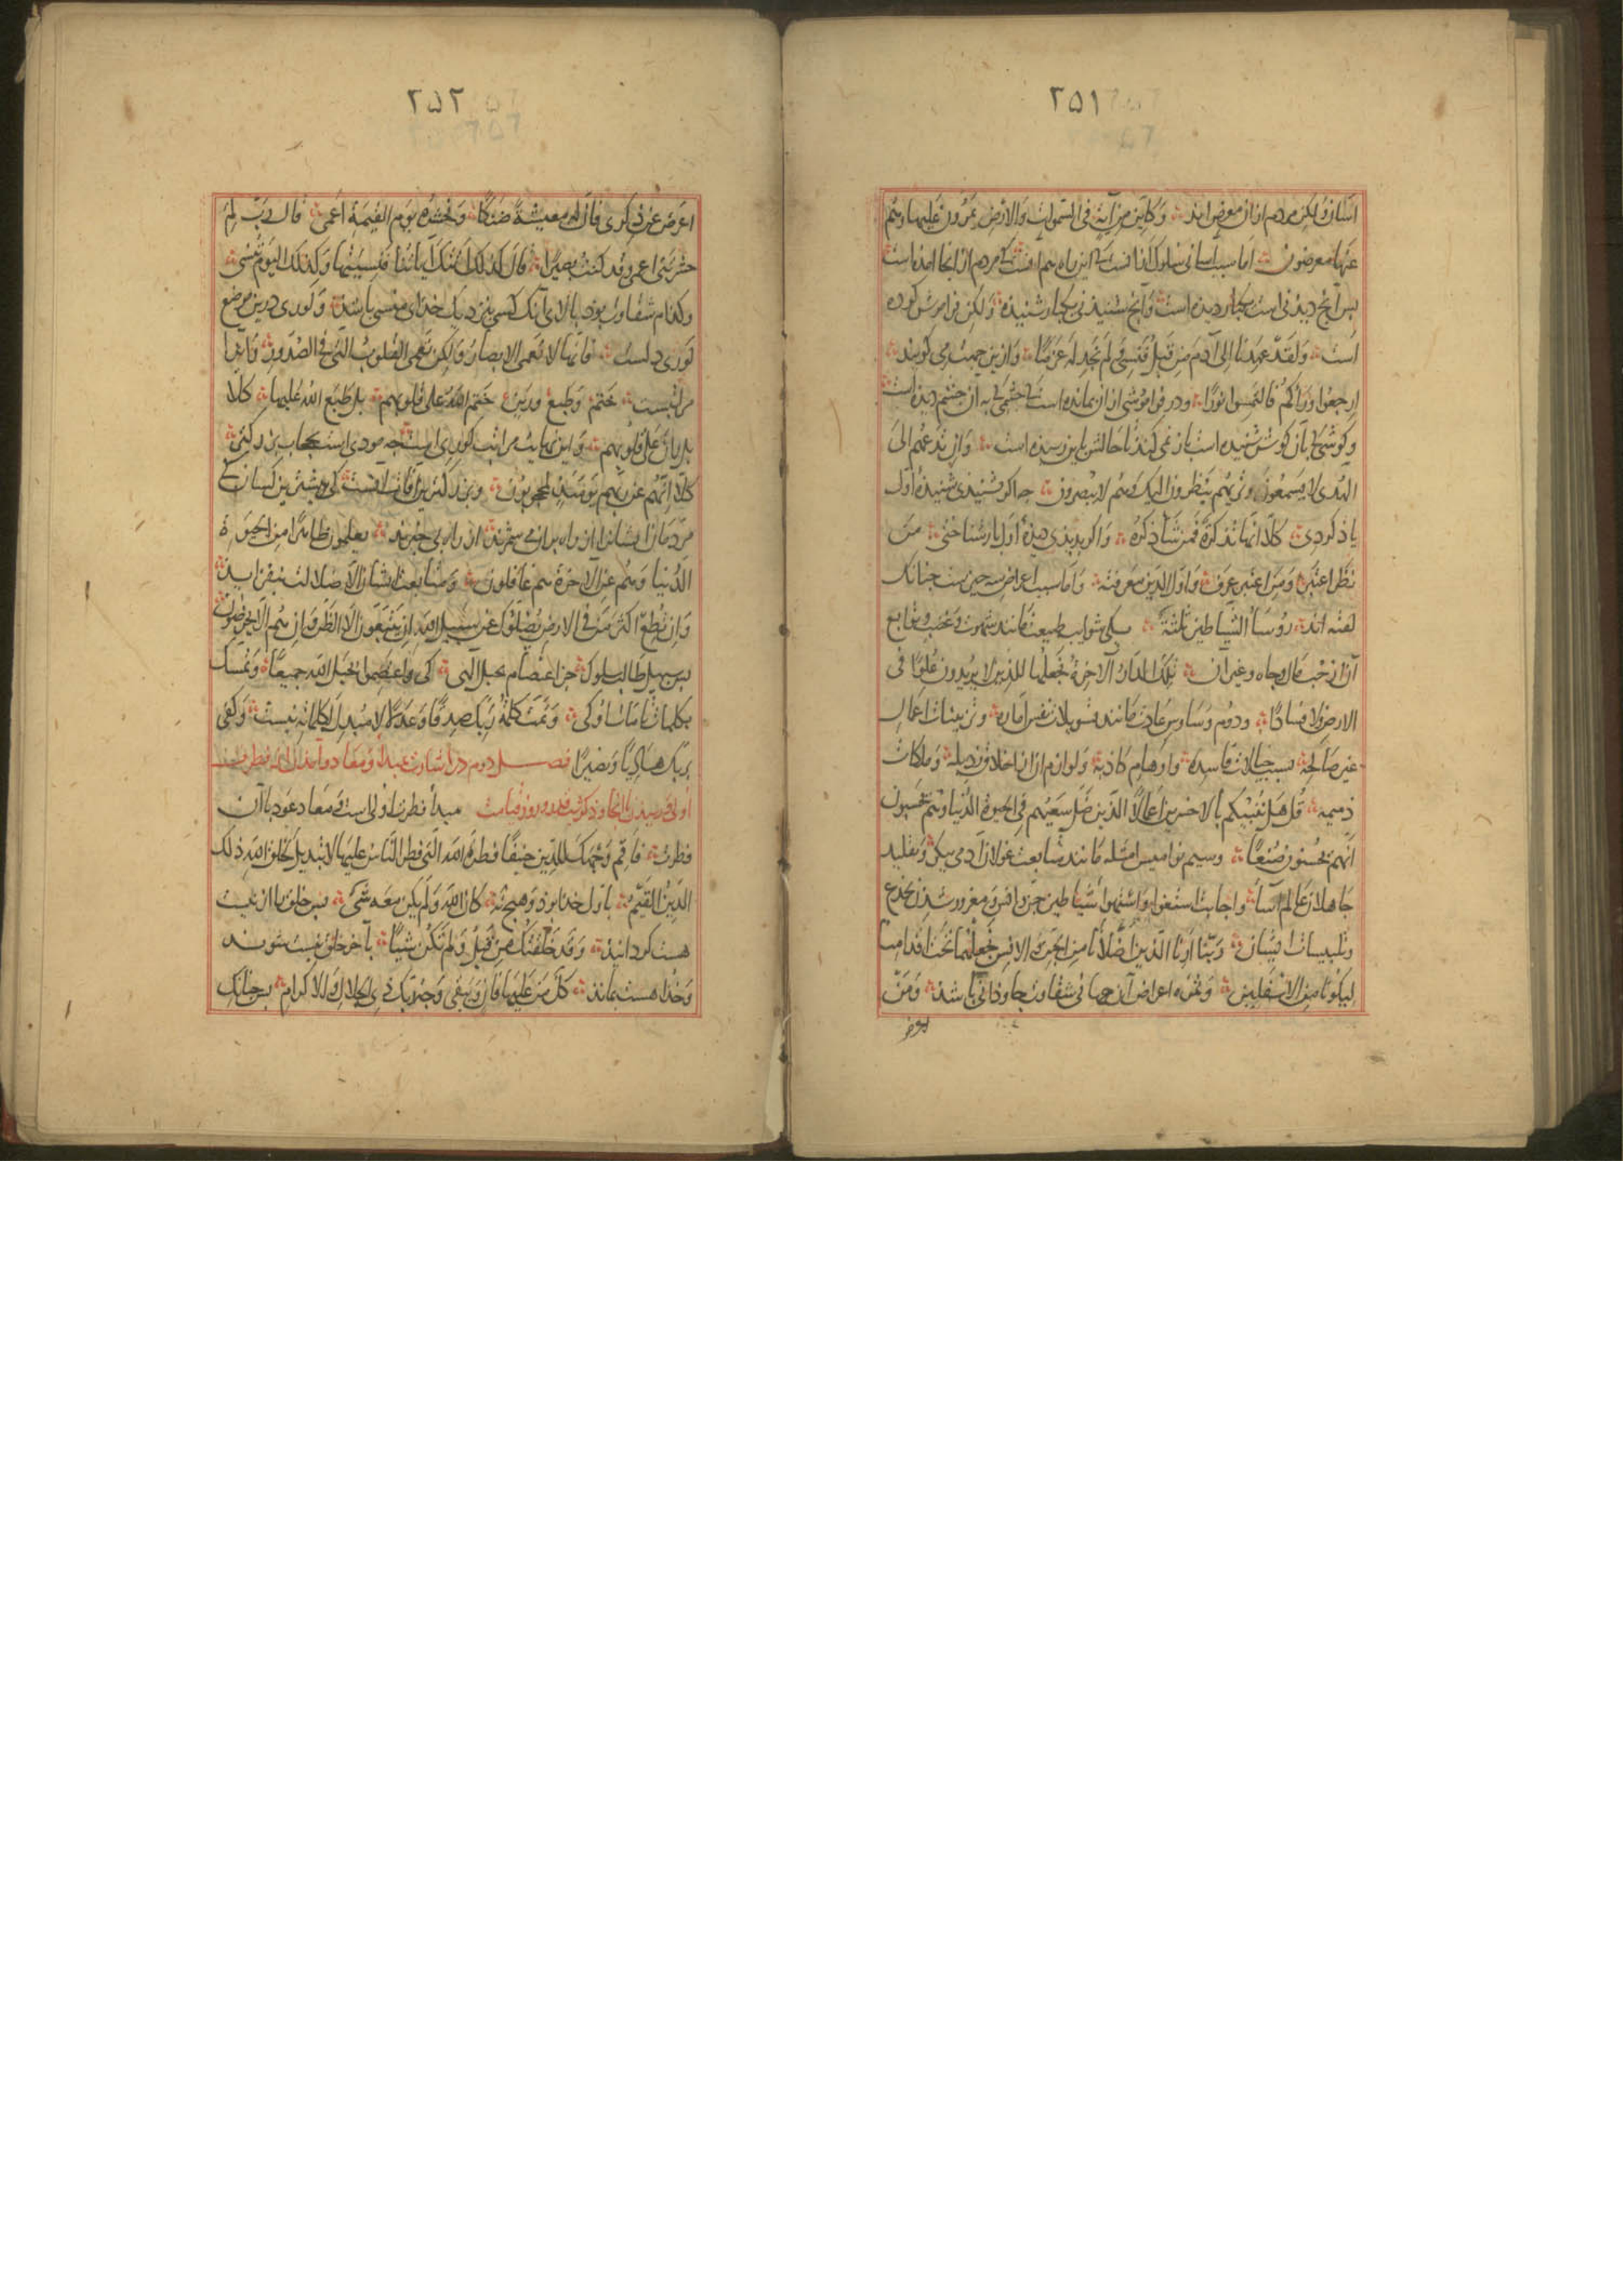 ۲۵۱
آسان و لیکن مردم از ان معرض اند وکاین من آیة فی السموات والارض یمرون علیها وهم
عنها معرضون اما سبب آسانی سلوک آنست که این راه هم آنست که مردم از انجا آمده است
پس آنچ دیدنی است یکبار دیده است و آنچ شنیدنی یکبار شنیده ولکن فراموش کرده
است ولقد عهدنا الی آدم من قبل فنسی ولم نجد له عزما و از ین جهت می گویند
ارجعوا وراءکم فالتمسوا نورا و در فراموشی از ان بمانده است که چشمی که به آن چشم دیده است
و گوشی که بآن گوش شنیده است باز نمی کند تا حالش باین رسیده است وان تدعهم الی
الهدی لا یسمعوا وتریهم ینظرون الیک وهم لا یبصرون چه اگر شنیدی شنیدهٔ اول
یاذ کردی کلا انها تذکرة فمن شاء ذکره و اگر بدیدی دیدهٔ اول باز شناختی من
نظر اعتبر ومن اعتبر عرف و اول الدین معرفته و اما سبب اعراض سه چیزست چنانک
گفته اند رؤساء الشیاطین ثلثة یکی شوایب طبیعت مانند شهوت و غضب و توابع
آن از حب مال و جاه و غیر آن تلک الدار الآخرة نجعلها للذین لا یریدون علوا فی
الارض ولا فسادا و دوم وساوس عادت مانند تسویلات نفس اماره و تزیینات اعمال
غیر صالحه بسبب خیالات فاسده و اوهام کاذبه و لوازم ان از اخلاق رذیله و ملکات
ذمیمه قل هل ننبئکم بالاخسرین اعمالا الذین ضل سعیهم فی الحیوة الدنیا وهم یحسبون
انهم یحسنون صنعا و سیم نوامیس امثله مانند متابعت غولان آدمی پیکر و تقلید
جاهلان عالم آسا و اجابت استغوا و استهواء شیاطین جن و انس و مغرور شدن بخدع
و تلبیسات ایشان ربنا ارنا الذین اضلانا من الجن والانس نجعلهما تحت اقدامنا
لیکونا من الاسفلین و ثمره اعراض آن جهانی شقاوت جاوذانی باشد ومن
اعرض
۲۵۲
اعرض عن ذکری فان له معیشة ضنکا ونحشره یوم القیمة اعمی قال رب لم
حشرتنی اعمی وقد کنت بصیرا قال کذلک اتتک آیاتنا فنسیتها وکذلک الیوم تنسی
و کدام شقاوت بوذ بالای آنک کسی نزدیک خدای منسی باشد و کوری درین موضع
کوری دلست فانها لا تعمی الابصار ولکن تعمی القلوب التی فی الصدور و آنرا
مراتبست ختم و طبع و رین ختم الله علی قلوبهم بل طبع الله علیها کلا
بل ران علی قلوبهم و این نهایت مراتب کوری است چه مودی است بحجاب بزرگترین
کلا انهم عن ربهم یومئذ لمحجوبون و بزرگترین آفات آنست که بیشترین کسان که
مردمان ایشانرا از راه بران می شمرند از راه بی خبرند یعلمون ظاهرا من الحیوة
الدنیا وهم عن الآخرة هم غافلون و متابعت ایشان الا ضلالت نیفزاید
وان تطع اکثر من فی الارض یضلوک عن سبیل الله ان یتبعون الا الظن وان هم الا یخرصون
پس سبیل طالب سلوک جز اعتصام بحبل الهی کی واعتصموا بحبل الله جمیعا و تمسک
بکلمات تامات او کی وتمت کلمة ربک صدقا وعدلا لا مبدل لکلماته نیست وکفی
بربک هادیا ونصیرا فصل دوم در اشارت بمبدأ و معاد و آمدن از فطرت
اولی و رسیدن بانجا و ذکر شب قدر و روز قیامت مبدأ فطرت اولی است و معاد عود باآن
فطرت فاقم وجهک للدین حنیفا فطرة الله التی فطر الناس علیها لا تبدیل لخلق الله ذلک
الدین القیم باول خدا بوذ و هیچ نه کان الله ولم یکن معه شیء پس خلق را از نیست
هست گردانید وقد خلقتک من قبل ولم تکن شیئا بآخر خلق نیست شوند
و خدا هست بماند کل من علیها فان ویبقی وجه ربک ذی الجلال والاکرام پس چنانک